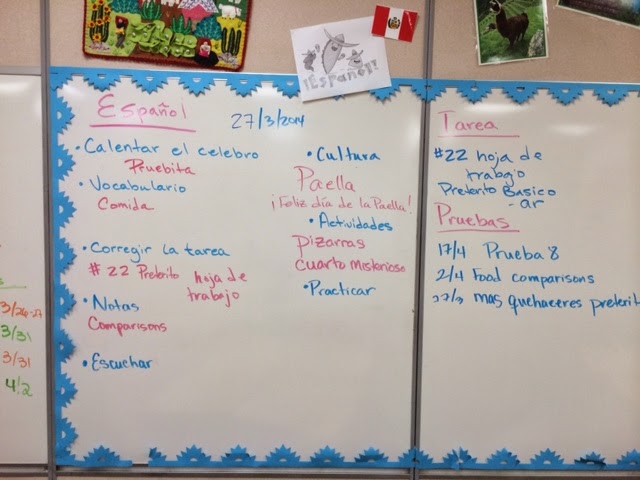 ¡Español!
Español
27/3/2014
• Calentar el celebro
Pruebita
• Vocabulario
Comida
• Corregir la tarea
# 22 Preterito hoja de
trabajo
• Notas
Comparisons
• Escuchar
• Cultura
Paella
¡Feliz día de la Paella!
• Actividades
pizarras
cuarto misterioso
• Practicar
Tarea
#22 hoja de
trabajo
Preterito Basico
-ar
Pruebas
17/4 Prueba 8
2/4 Food comparisons
27/3 mas quehaceres preterit
3/26-27
3/31
3/31
4/2